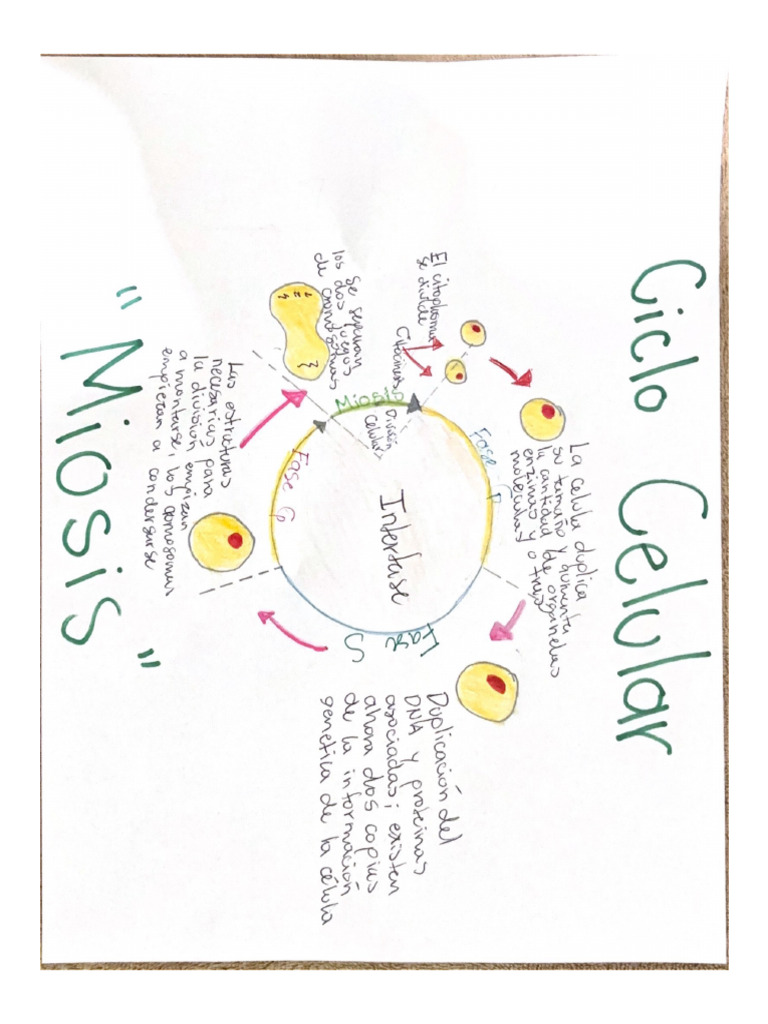 Ciclo Celular
El citoplasma
se divide
Citocinesis
Se separan
los dos juegos
de cromosomas
Miosis
División
celular
Fase
La celula duplica
su tamaño y aumenta
la cantidad de organelas
enzimas y otras
moleculas
Interfase
Fase
Las estructuras
necesarias para
la división empizan
a montarse, los
empiezan a condensarse
Fase
S
Duplicación del
DNA y proteinas
asociadas; existen
ahora dos copias
de la información
genetica de la célula
"Miosis"